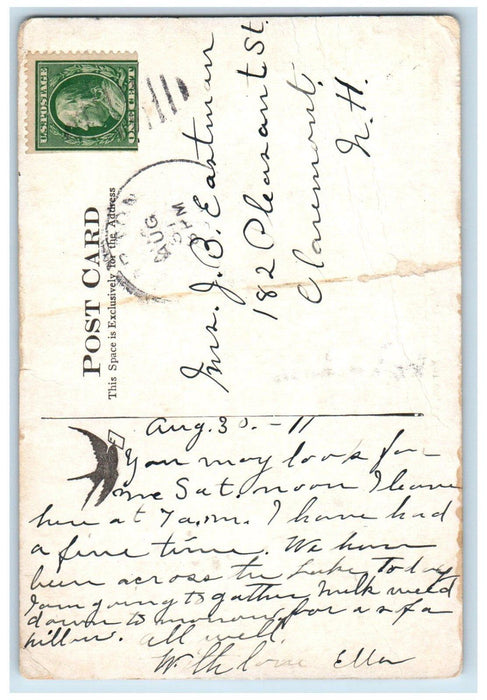 U.S. POSTAGE
ONE CENT
AUG
31
PM
POST CARD
This Space is Exclusively for the Address
Mrs. J. B. Eastman
182 Pleasant St.
Claremont,
N. H.
Aug. 30. - 11
You may look for
me Sat. noon I leave
here at 7 a.m. I have had
a fine time. We have
been across the Lake today
I am going to gather milk weed
down to morrow for a sofa
pillow. all well.
With love Ella